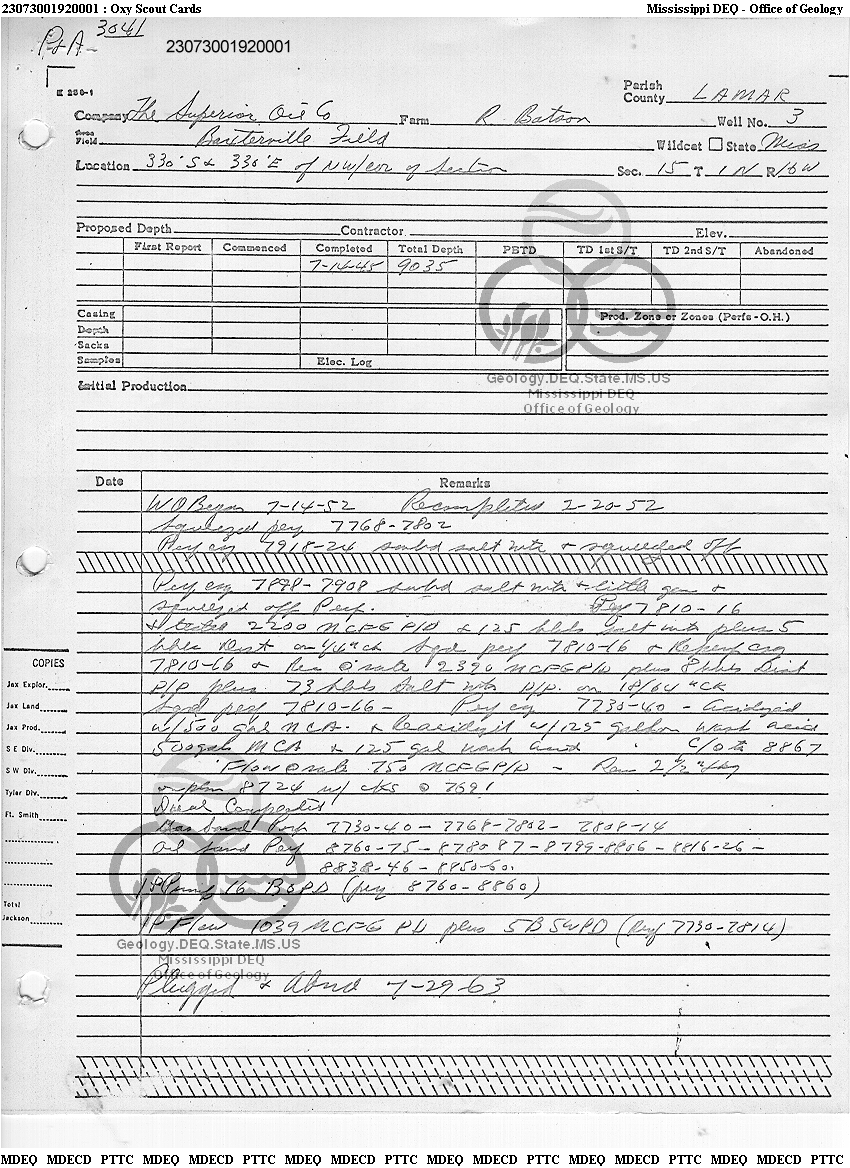 23073001920001 : Oxy Scout Cards Mississippi DEQ - Office of Geology
P&A- 3041 23073001920001
E 250-1
Parish
County LAMAR
Company The Superior Oil Co Farm R. Batson Well No. 3
Field Baxterville Field Wildcat State Miss
Location 330'S & 330'E of NW/cor of Section Sec. 15 T 1N R 16W
Proposed Depth Contractor Elev.
First Report Commenced Completed Total Depth PBTD TD 1st S/T TD 2nd S/T Abandoned
7-14-45 9035
Casing Prod. Zone or Zones (Perfs-O.H.)
Depth
Sacks
Samples Elec. Log
Geology.DEQ.State.MS.US
Mississippi DEQ
Office of Geology
Initial Production
Date Remarks
WO Began 7-14-52 Recompleted 2-20-52
Squeezed perf 7768-7802
Perf csg 7918-24 swbd salt wtr & squeezed off
Perf csg 7898-7908 swbd salt wtr & little gas &
squeezed off Perf. Perf 7810-16
& tested 2200 MCFG P/D & 125 bbls salt wtr plus 5
bbls Dist on 1/4" ck Sqd perf 7810-16 & Reperf csg
7810-66 & Rec @ rate 2390 MCFGP/D plus 8 bbls Dist
P/D plus 73 bbls Salt wtr P/D. on 18/64" CK
Sqd perf 7810-66 - Perf csg 7730-40 - acidized
w/500 gal MCA. & Reacidized w/125 gallon wash acid
500 gals MCA & 125 gal wash acid C/O to 8867
Flow @ rate 750 MCFGP/D - Ran 2 1/2" tbg
on pkr 8724 w/ cks @ 7691
Dual Completed
Gas Sand Perf 7730-40 - 7768-7802 - 7808-14
Oil sand Perf 8760-75 - 8780 87 - 8799-8806 - 8816-26 -
8838-46 - 8850-60.
IP Pump 16 BOPD (perf 8760-8860)
IP Flow 1039 MCFG PD plus 5 B SWPD (Perf 7730-7814)
Geology.DEQ.State.MS.US
Mississippi DEQ
Office of Geology
Plugged & Abnd 7-29-63
COPIES
Jax Explor.
Jax Land
Jax Prod.
S E Div.
S W Div.
Tyler Div.
Ft. Smith
Total
Jackson
MDEQ MDECD PTTC MDEQ MDECD PTTC MDEQ MDECD PTTC MDEQ MDECD PTTC MDEQ MDECD PTTC